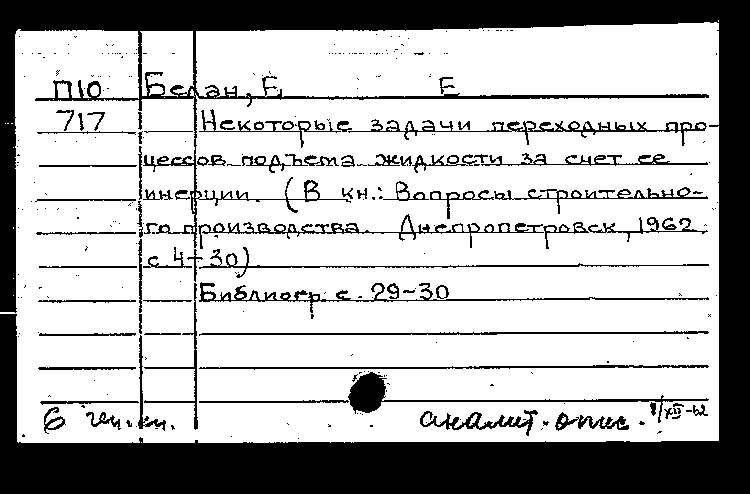 П10 Белан, Е. Е
717 Некоторые задачи переходных про-
цессов подъема жидкости за счет ее
инерции. (В кн.: Вопросы строительно-
го производства. Днепропетровск, 1962.
с 4-30)
Библиогр. с. 29-30
б аналит. опис. 8/XII-62